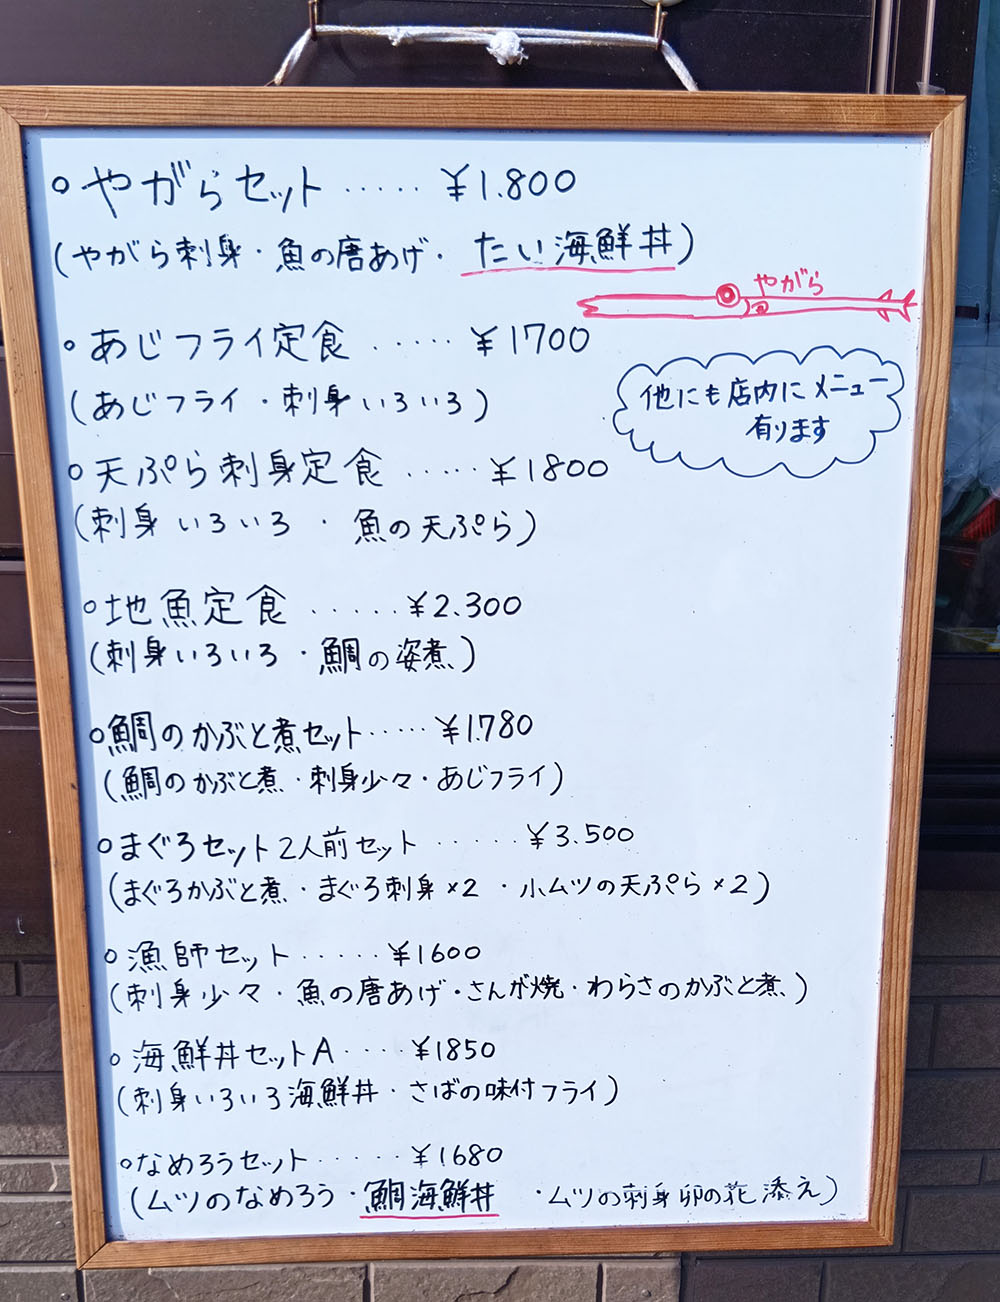 ○やがらセット ····· ¥1.800
(やがら刺身・魚の唐あげ・たい海鮮丼)
やがら
○あじフライ定食 ····· ¥1700
(あじフライ・刺身いろいろ)
他にも店内にメニュー
有ります
○天ぷら刺身定食 ····· ¥1800
(刺身いろいろ・魚の天ぷら)
○地魚定食 ····· ¥2.300
(刺身いろいろ・鯛の姿煮)
○鯛のかぶと煮セット ····· ¥1.780
(鯛のかぶと煮・刺身少々・あじフライ)
○まぐろセット2人前セット ····· ¥3.500
(まぐろかぶと煮・まぐろ刺身×2・小ムツの天ぷら×2)
○漁師セット ····· ¥1600
(刺身少々・魚の唐あげ・さんが焼・わらさのかぶと煮)
○海鮮丼セットA ···· ¥1850
(刺身いろいろ海鮮丼・さばの味付フライ)
○なめろうセット ····· ¥1680
(ムツのなめろう・鯛海鮮丼・ムツの刺身卯の花添え)